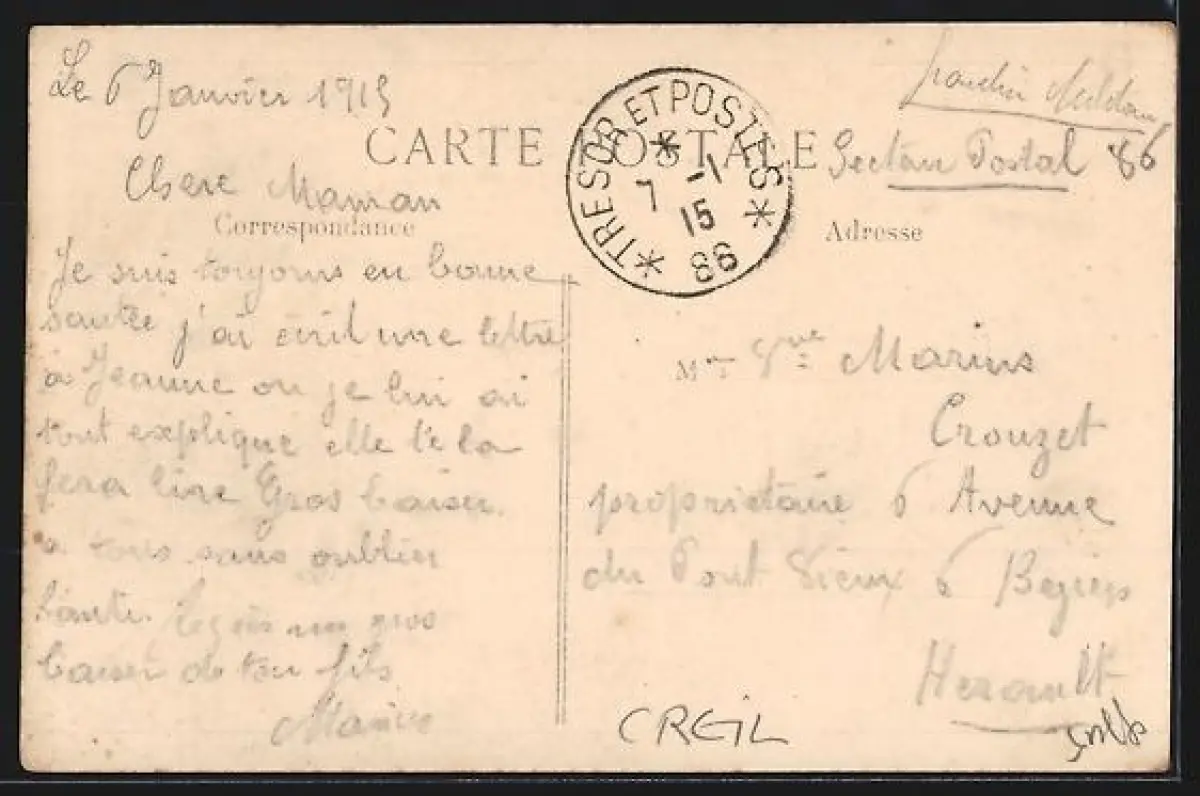 Le 6 Janvier 1915
CARTE POSTALE
Secteur Postal 86
TRESOR ET POSTES
7 -1
15
86
Chere Maman
Correspondance
Je suis toujours en bonne
santée j'ai écrit une lettre
a Jeanne ou je lui ai
tout explique elle te la
fera lire Gros baiser
a tous sans oublier
tante. un gros
baiser de ton fils
Marius
Adresse
M Marius
Crouzet
propriétaire 6 Avenue
du Pont Vieux 6 Beziers
Herault
CREIL